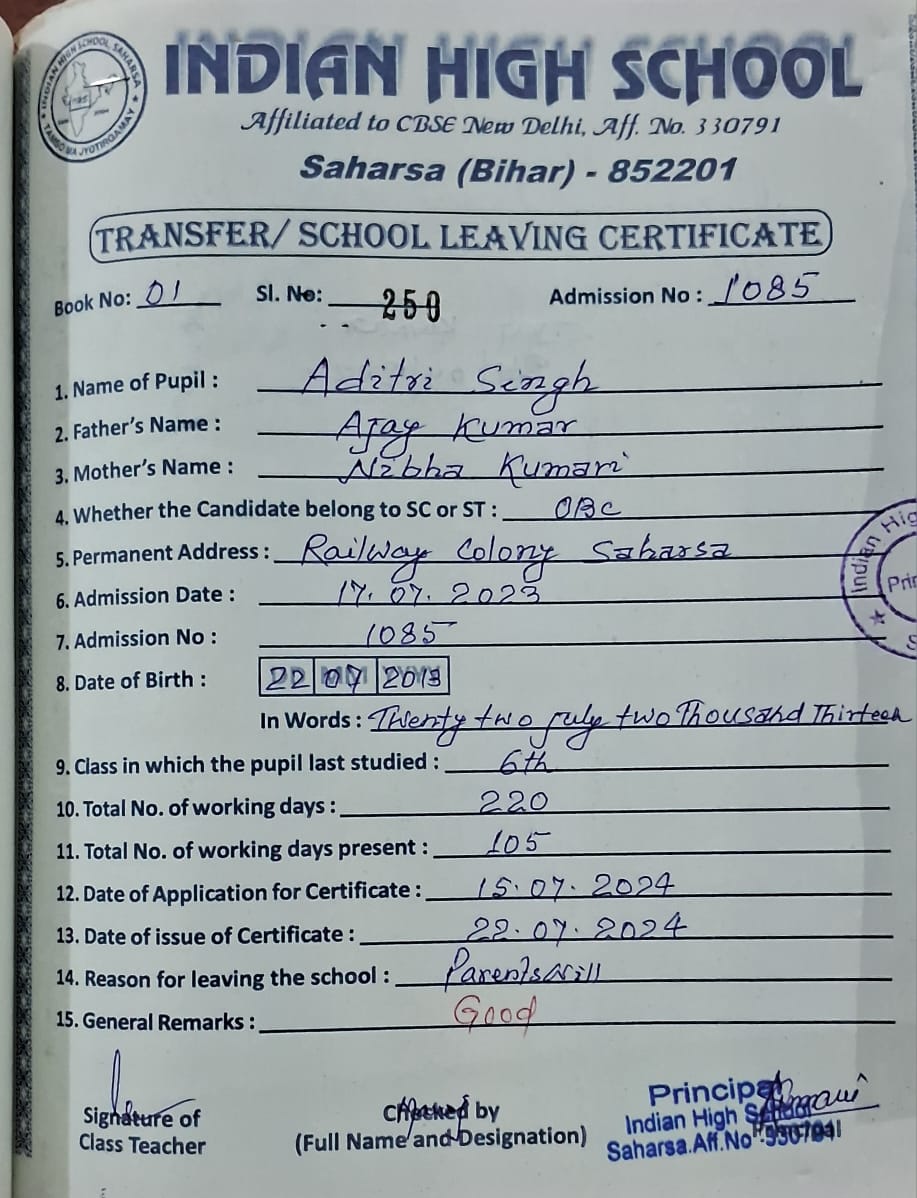 INDIAN HIGH SCHOOL SAHARSA
TAMSO MA JYOTIRGAMAY
INDIAN HIGH SCHOOL
Affiliated to CBSE New Delhi, Aff. No. 330791
Saharsa (Bihar) - 852201
TRANSFER/ SCHOOL LEAVING CERTIFICATE
Book No: 01 Sl. No: 250 Admission No : 1085
1. Name of Pupil : Aditri Singh
2. Father's Name : Ajay Kumar
3. Mother's Name : Nibha Kumari
4. Whether the Candidate belong to SC or ST : OBC
5. Permanent Address : Railway Colony Saharsa
6. Admission Date : 17.07.2023
7. Admission No : 1085
8. Date of Birth : 22 07 2013
In Words : Twenty two july two Thousand Thirteen
9. Class in which the pupil last studied : 6th
10. Total No. of working days : 220
11. Total No. of working days present : 105
12. Date of Application for Certificate : 15.07.2024
13. Date of issue of Certificate : 22.07.2024
14. Reason for leaving the school : Parents will
15. General Remarks : Good
Indian Hig
Prin
Signature of
Class Teacher
Checked by
(Full Name and Designation)
Principal
Indian High School
Saharsa.Aff.No